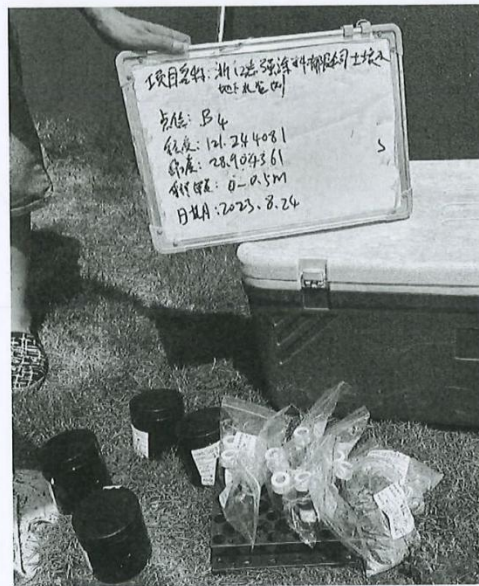 项目名称:浙江志强涂料有限公司土壤及
地下水监测
点位:B4
经度:121.244081
纬度:28.904361
S
采样深度:0-0.5m
日期:2023.8.24